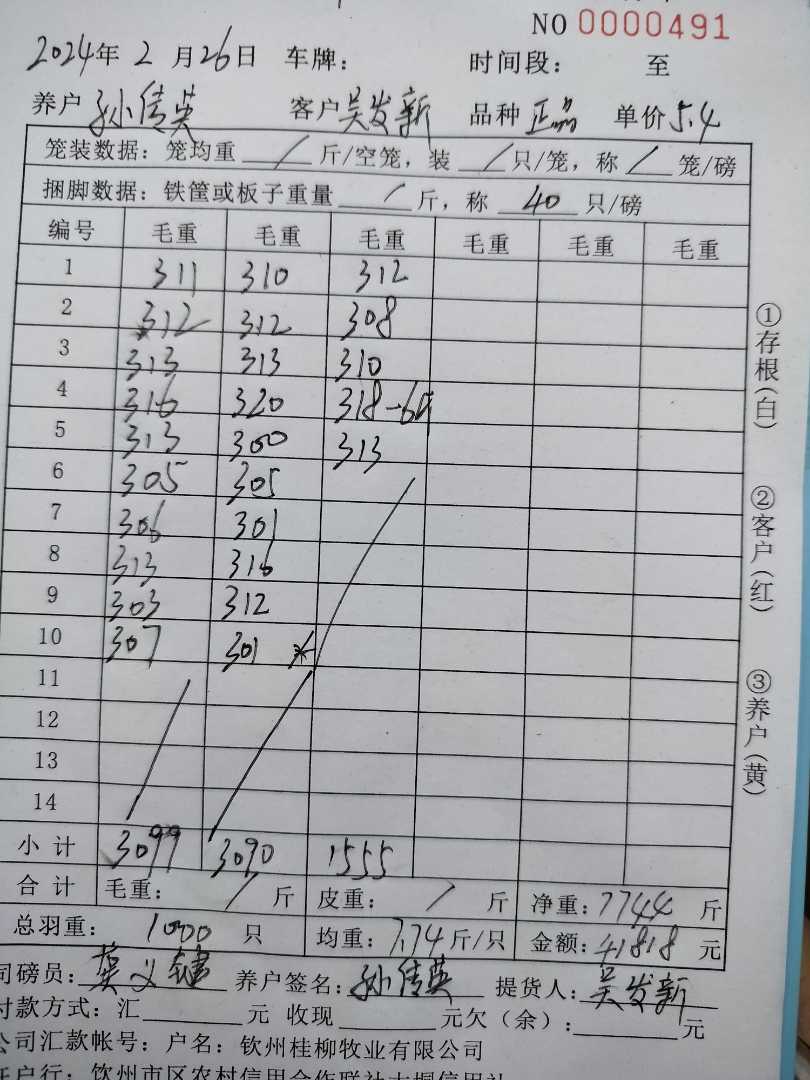 NO 0000491
2024年 2 月26日 车牌： 时间段： 至
养户 孙倩英 客户 吴发新 品种 正品 单价 5.4
笼装数据：笼均重 / 斤/空笼，装 / 只/笼，称 / 笼/磅
捆脚数据：铁筐或板子重量 / 斤，称 40 只/磅
编号 毛重 毛重 毛重 毛重 毛重 毛重
1 311 310 312
2 312 312 308
3 313 313 310
4 316 320 318-6只
5 313 300 313
6 305 305
7 306 301
8 313 316
9 303 312
10 307 301
11
12
13
14
小计 3099 3090 1555
合计 毛重： / 斤 皮重： / 斤 净重：7744 斤
总羽重： 1000 只 均重：7.74 斤/只 金额：41818 元
司磅员：龚义 养户签名：孙倩英 提货人：吴发新
付款方式：汇 元 收现 元欠（余）： 元
公司汇款帐号：户名：钦州桂柳牧业有限公司
开户行：钦州市区农村信用合作联社大垌信用社
①存根（白）
②客户（红）
③养户（黄）